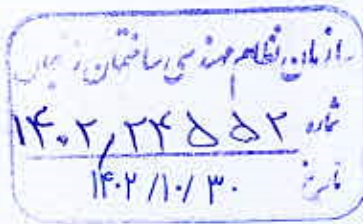 سازمان نظام مهندسی ساختمان زنجان
شماره ۱۴۰۲٫۲۴۵۵۲
تاریخ ۱۴۰۲/۱۰/۳۰